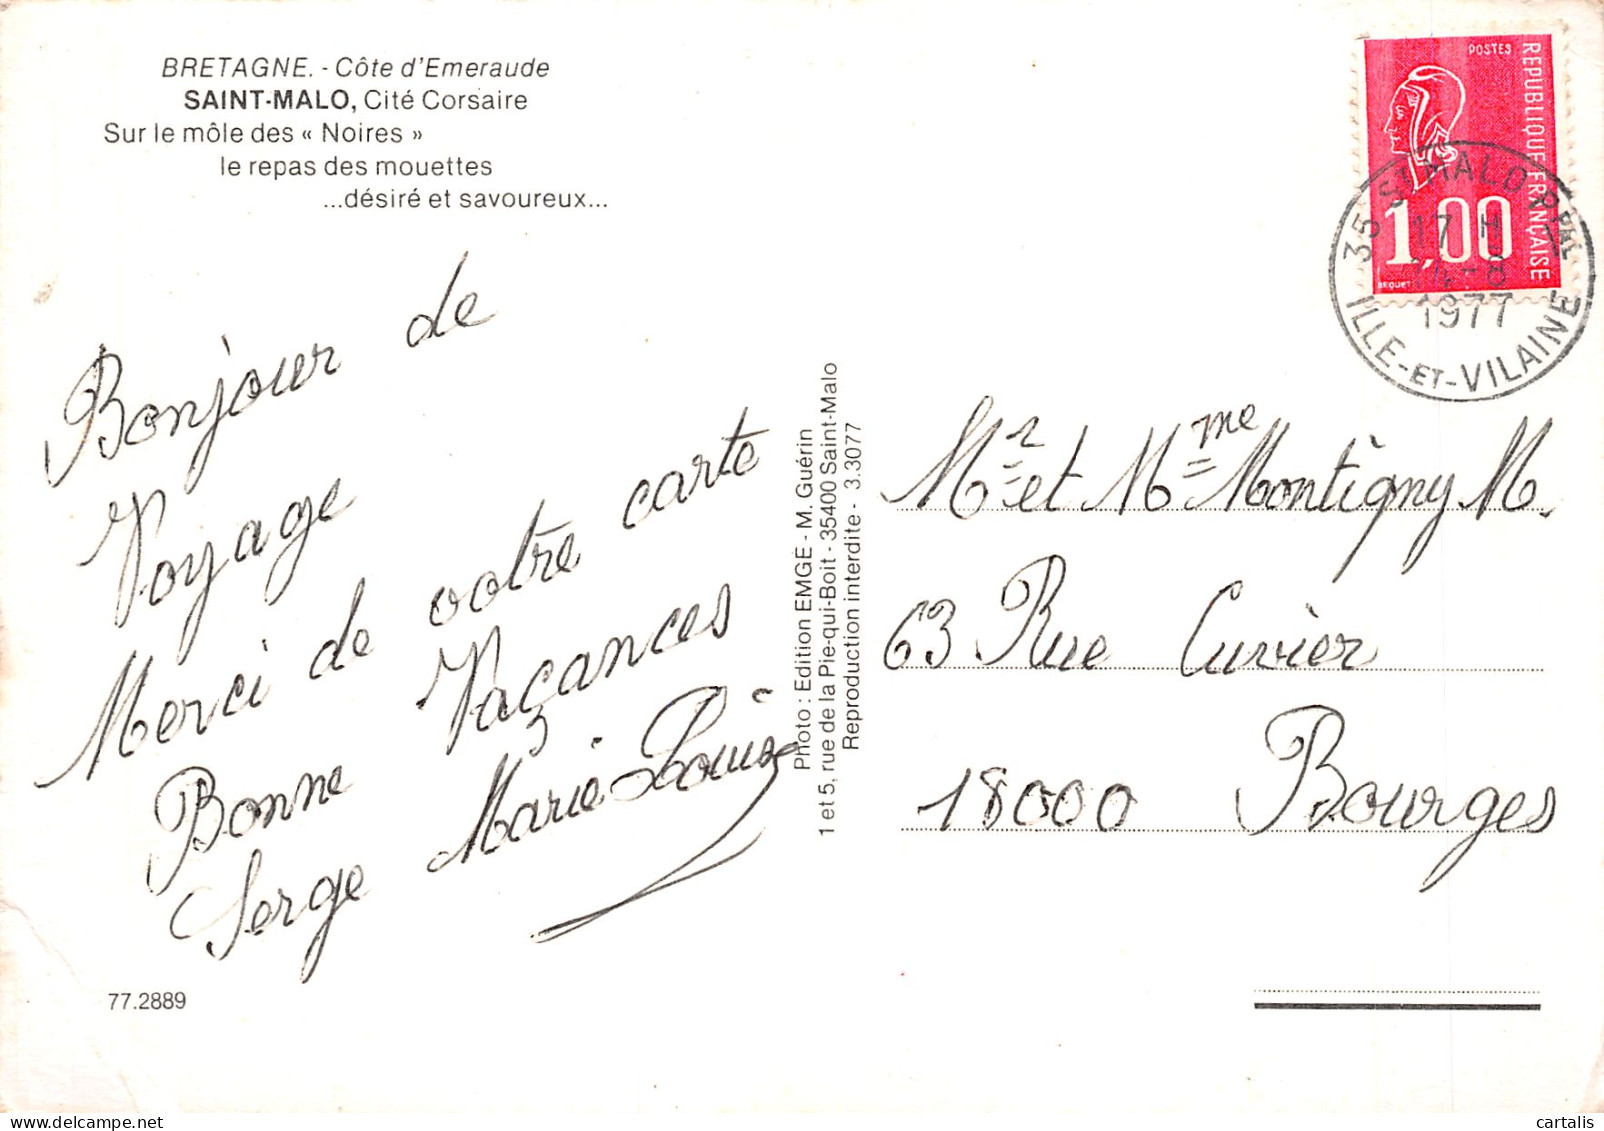 BRETAGNE. - Côte d'Emeraude
SAINT-MALO, Cité Corsaire
Sur le môle des « Noires »
le repas des mouettes
...désiré et savoureux...
Bonjour de
Voyage
Merci de votre carte
Bonne Vaçances
Serge Marie-Louise
77.2889
Photo : Edition EMGE - M. Guérin
1 et 5, rue de la Pie-qui-Boit - 35400 Saint-Malo
Reproduction interdite - 3.3077
POSTES
REPUBLIQUE FRANÇAISE
1,00
BEQUET
35 ST MALO PPAL
17 H
14-8
1977
ILLE-ET-VILAINE
Mr et Mme Montigny M.
63 Rue Cuvier
18000 Bourges
cartalis